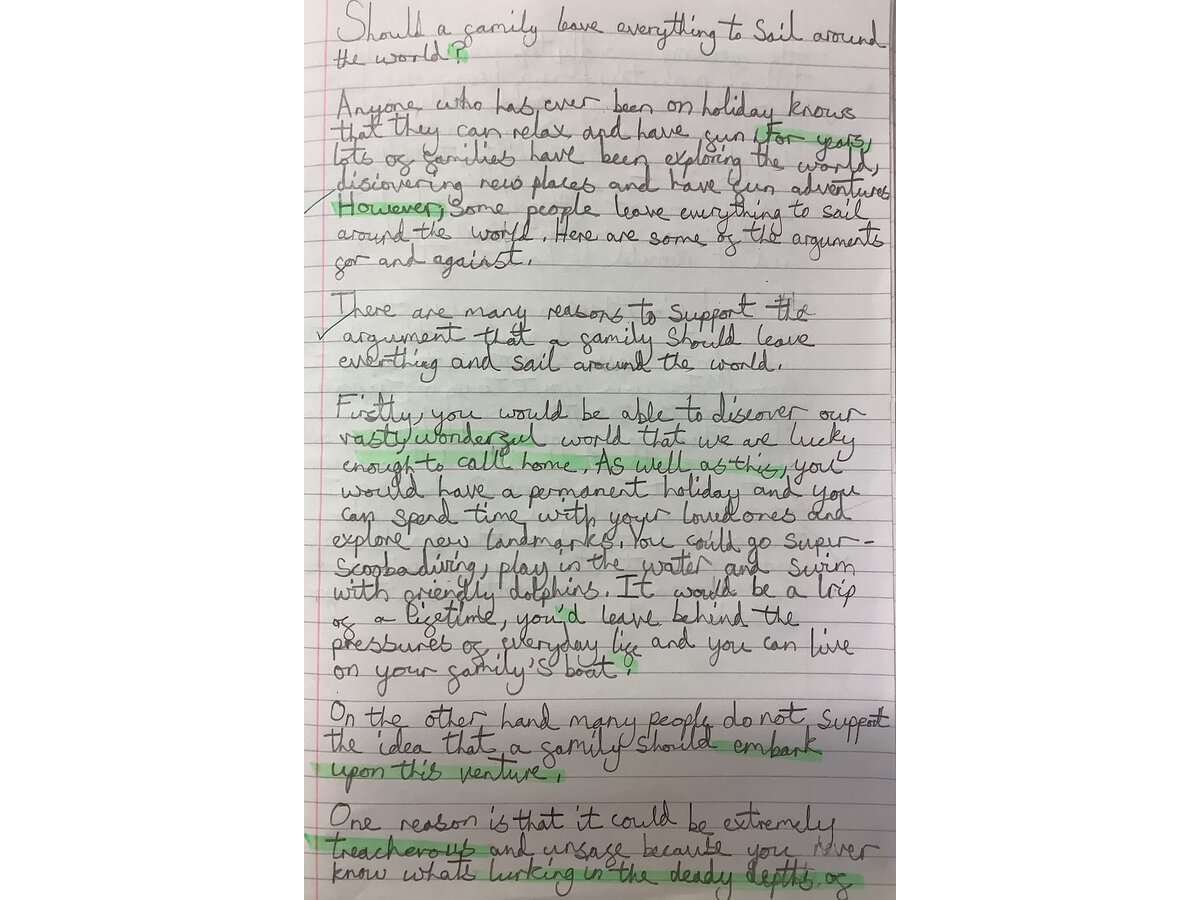 Should a family leave everything to Sail around
the world?
Anyone who has ever been on holiday knows
that they can relax and have fun. For years,
lots of families have been exploring the world,
discovering new places and have fun adventures
However, Some people leave everything to sail
around the world. Here are some of the arguments
for and against.
There are many reasons to Support the
argument that a family Should leave
everthing and sail around the world.
Firstly, you would be able to discover our
vasty wonderful world that we are lucky
enough to call home. As well as this, you
would have a permanent holiday and you
can spend time with your loved ones and
explore new landmarks. You could go super-
scooba diving, play in the water and swim
with friendly dolphins. It would be a trip
of a lifetime, you'd leave behind the
pressures of everyday life and you can live
on your family's boat.
On the other hand many people do not Support
the idea that a family Should embark
upon this venture.
One reason is that it could be extremely
treacherous and unsafe because you never
know whats lurking in the deady depths of